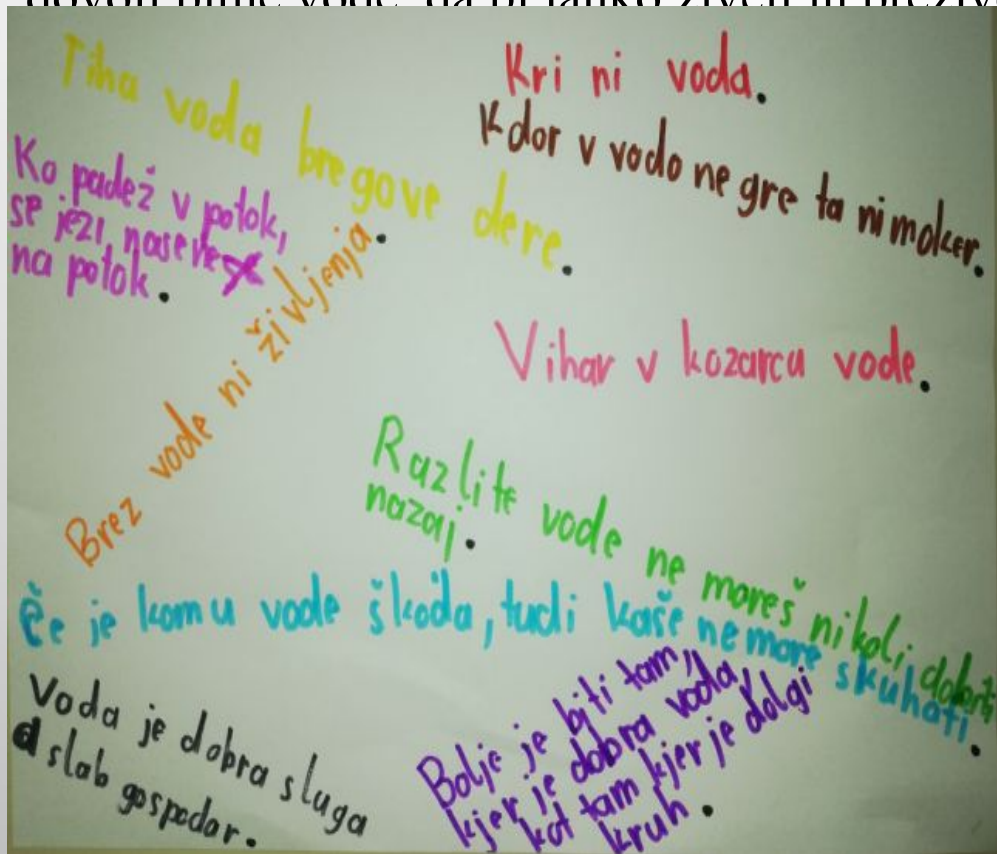 Tiha voda bregove dere.
Kri ni voda.
Kdor v vodo ne gre ta ni moker.
Ko padež v potok,
se jezi,
na potok.
Brez vode ni življenja.
Vihar v kozarcu vode.
Razlite vode ne moreš nikoli dobiti
nazaj.
Če je komu vode škoda, tudi kaše ne more skuhati.
Voda je dobra sluga
a slab gospodar.
Bolje je biti tam,
kjer je dobra voda,
kot tam kjer je dolgi
kruh.